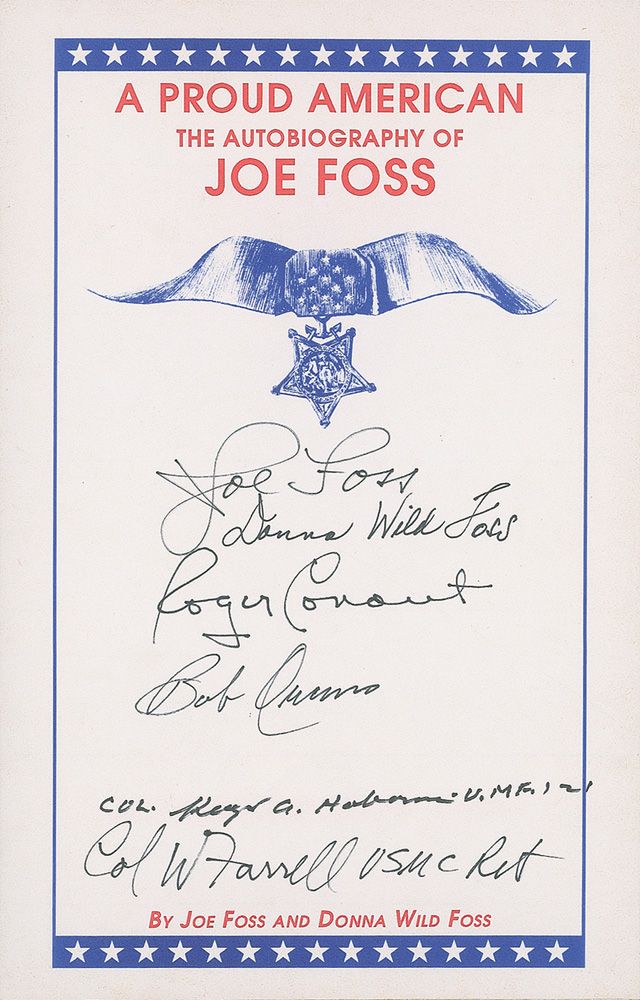 A PROUD AMERICAN
THE AUTOBIOGRAPHY OF
JOE FOSS
Joe Foss
Donna Wild Foss
Roger Conant
Bob
COL. Roger A. V.M.F. 121
Col W Farrell USMC Ret
BY JOE FOSS AND DONNA WILD FOSS